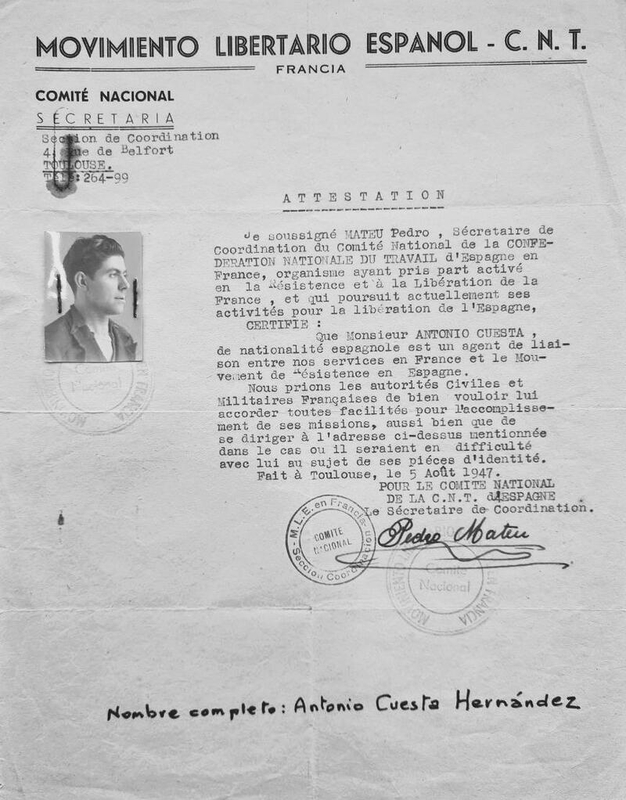 MOVIMIENTO LIBERTARIO ESPANOL - C. N. T.
FRANCIA
COMITÉ NACIONAL
SECRETARIA
Section de Coordination
4, rue de Belfort
TOULOUSE.
Tél: 264-99
ATTESTATION
Je soussigné MATEU Pedro , Sécretaire de
Coordination du Comité National de la CONFE-
DERATION NATIONALE DU TRAVAIL d'Espagne en
France, organisme ayant pris part activé
en la Résistence et à la Libération de la
France , et qui poursuit actuellement ses
activités pour la libération de l'Espagne,
CERTIFIE :
Que Monsieur ANTONIO CUESTA ,
de nationalité espagnole est un agent de liai-
son entre nos services en France et le Mou-
vement de Résistence en Espagne.
Nous prions les autorités Civiles et
Militaires Françaises de bien vouloir lui
accorder toutes facilités pour l'accomplisse-
ment de ses missions, aussi bien que de
se diriger à l'adresse ci-dessus mentionnée
dans le cas ou il seraient en difficulté
avec lui au sujet de ses piéces d'identité.
Fait à Toulouse, le 5 Août 1947.
POUR LE COMITE NATIONAL
DE LA C.N.T. d'ESPAGNE
Le Sécretaire de Coordination.
Pedro Mateu
M.L.E. en Francia
COMITE
NACIONAL
Seccion Coordinacion
MOVIMIENTO
Comité
Nacional
EN FRANCIA
Nombre completo: Antonio Cuesta Hernández